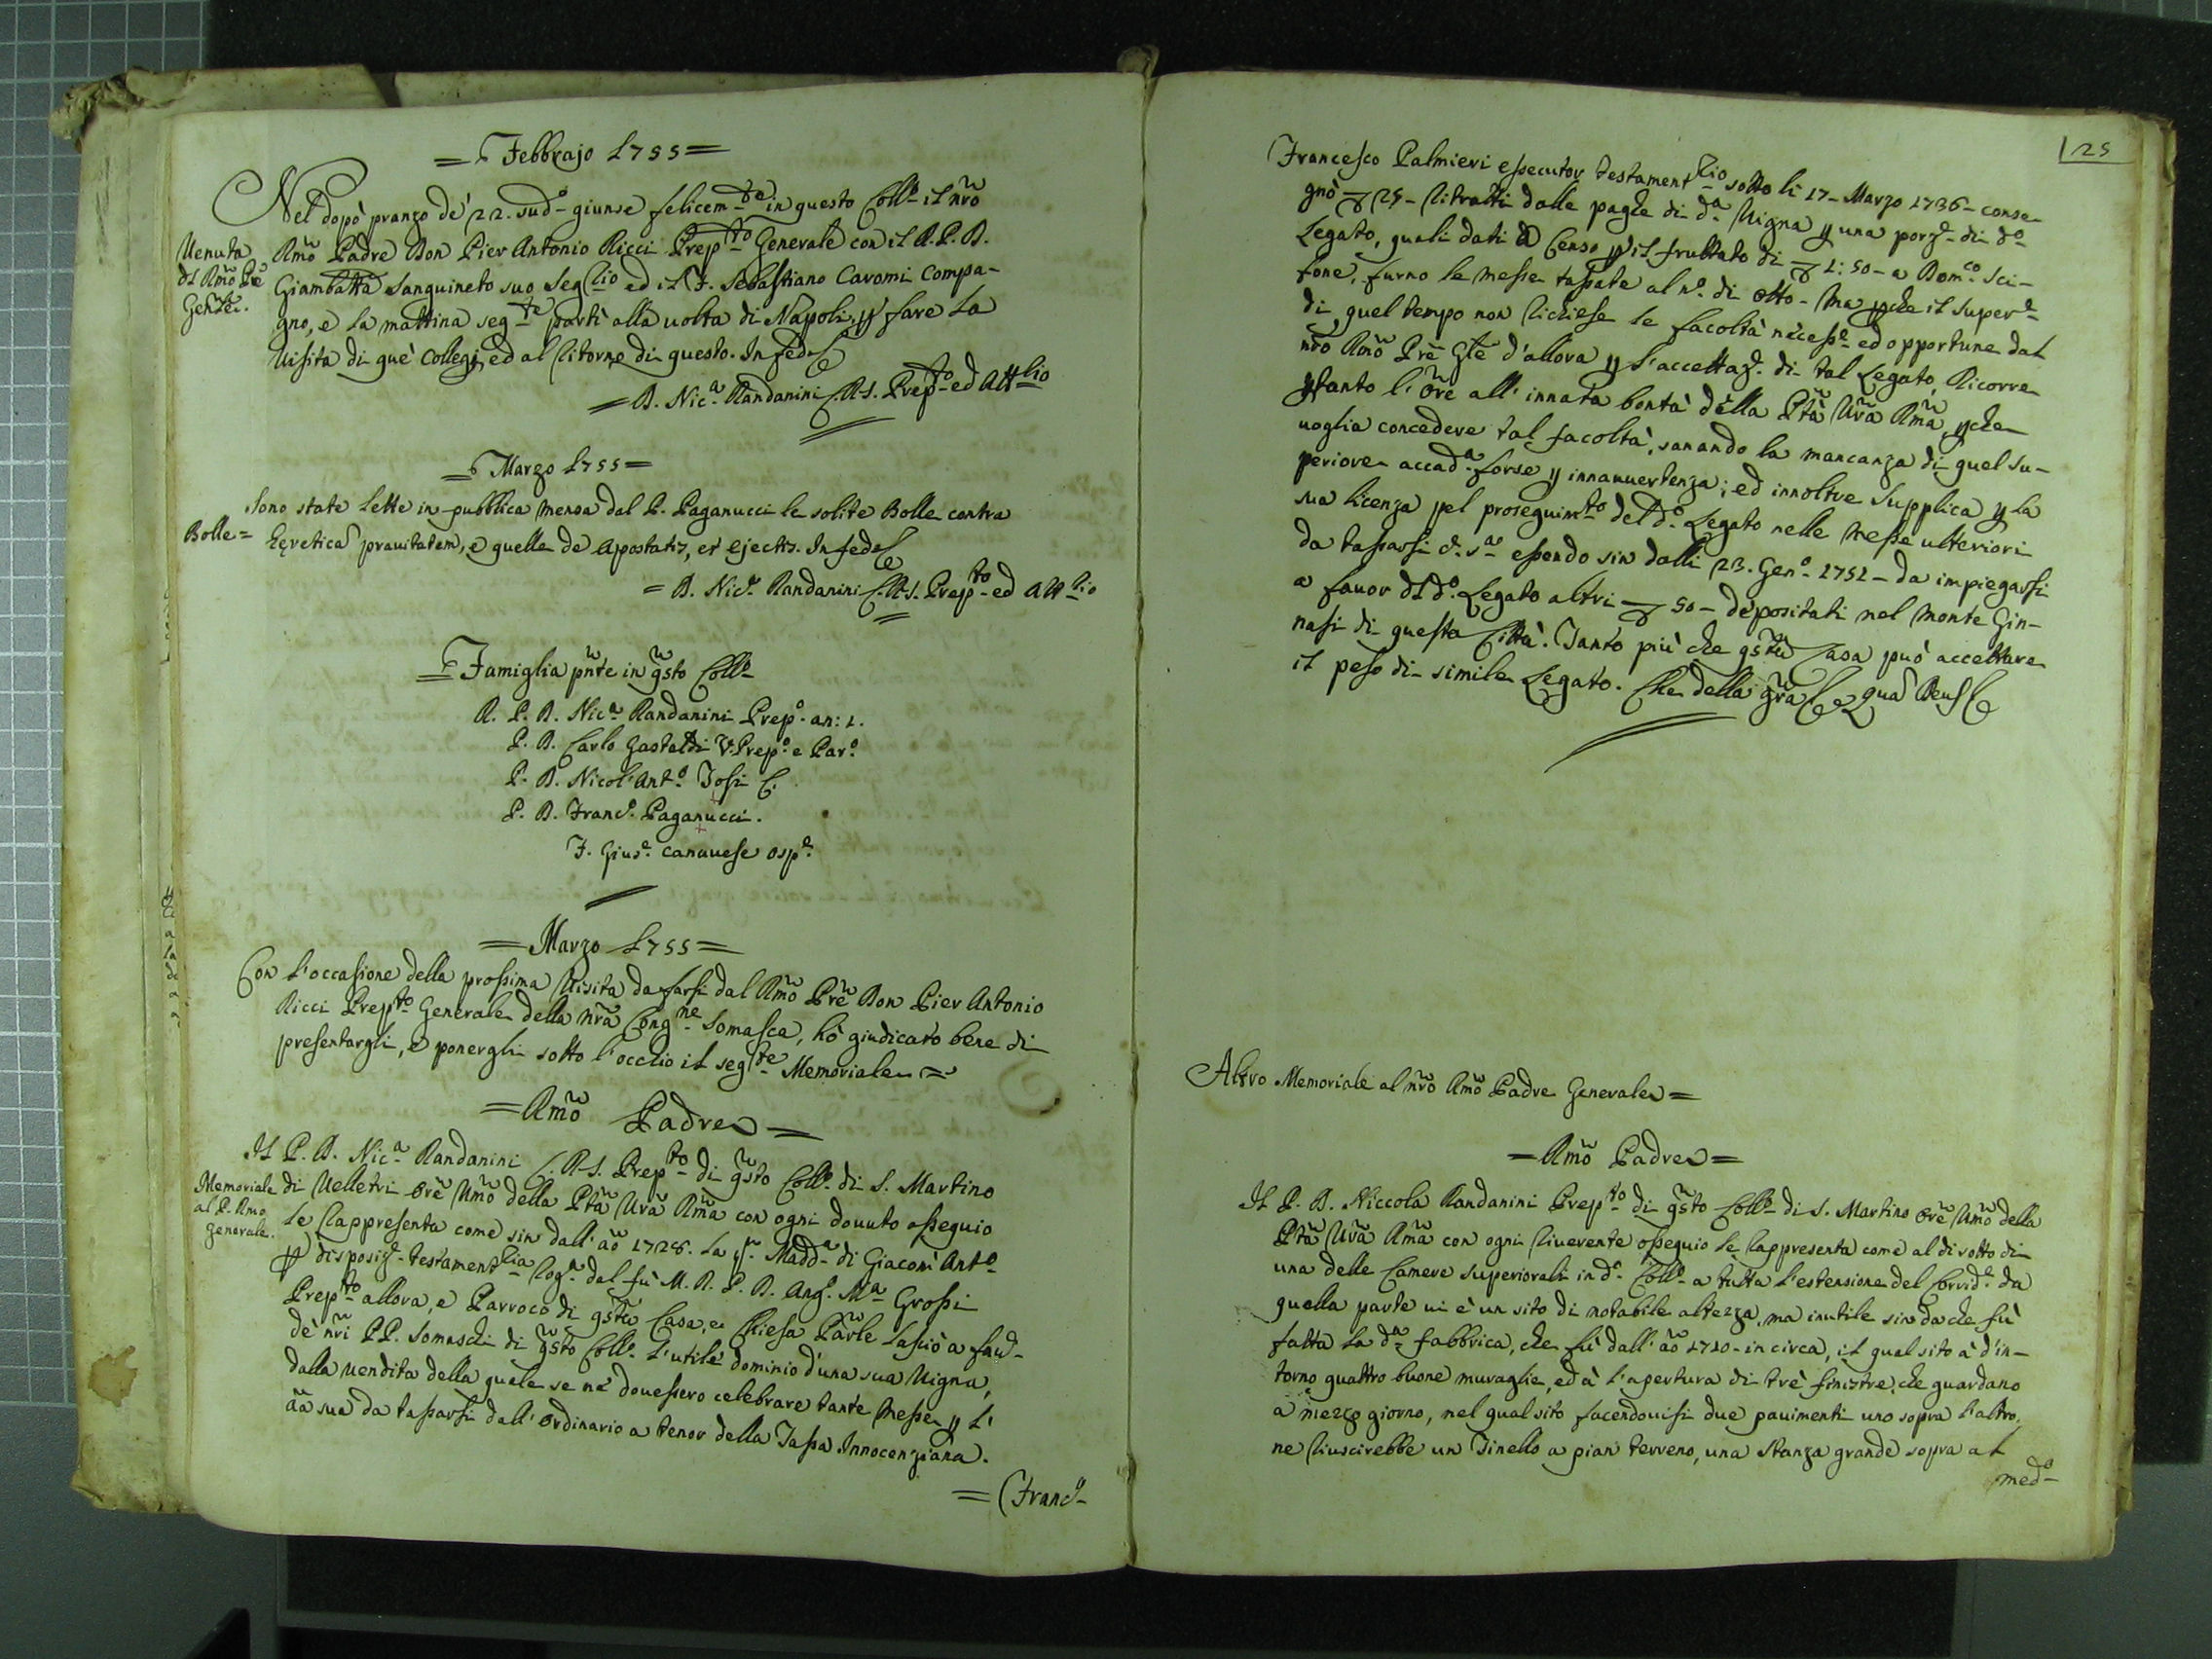 = Febbrajo 1755 =
Nel dopò pranzo de' 22. sudº giunse felicemte in questo Collº il nrõ
Venuta
dl Rmõ Prẽ
Genle.
Rmõ Padre Don Pier Antonio Ricci Prepto Generale con il R. P. D.
Giambattã Sanguineto suo Seglio ed il F. Sebastiano Cavomi Compa-
gno, e la mattina segte partì alla uolta di Napoli, p fare la
Visita di què Collegj, ed al ritorno di questo. In fede
= D. Nicª Randanini C.R.S. Prepto ed Attlio
= Marzo 1755 =
Bolle =
Sono state lette in pubblica mensa dal P. Paganucci le solite Bolle contra
hęreticã prauitatem, e quelle de Apostatis, et ejectis. In fede
= D. Nicª Randanini C.R.S. Prepto ed Attlio
= Famiglia pñte in qsto Collº
R. P. D. Nicª Randanini Prepº an: 1.
P. D. Carlo Gastaldi V. Prepº e Parº
P. D. Nicol' Antº Tosi C.
P. D. Francº Paganucci.
F. Giusᵉ Canauese ospᵉ
= Marzo 1755 =
Con l'occasione della prossima Visita da farsi dal Rmõ Prẽ Don Pier Antonio
Ricci Prepto Generale della nrã Congne Somasca, hò giudicato bene di
presentargli, e ponergli sotto l'occhio il segte Memoriale =
= Rmõ Padre =
Il P. D. Nicª Randanini C.R.S. Prepto di qsto Collº di S. Martino
Memoriale
al P. Rmo
Generale.
di Velletri orẽ Umõ della Ptã Vrã Rmã con ogni douuto ossequio
le rappresenta come sin dall' aõ 1728. la Maddª di Giacom' Antº
p disposizᵉ testamentlia rogª dal fù M. R. P. D. Angº Mª Grossi
Prepto allora, e Parroco di qstã Casa, e Chiesa Parle lasciò a fauº
dè nrĩ PP. Somaschi di qsto Collº l'utile dominio d'una sua Vigna,
dalla uendita della quale se nè douessero celebrare tante Messe p l'
aã sua da tassarsi dall' ordinario a tenor della Tassa Innocenziana.
= (Francº
125
Francesco Palmieri essecutor testamentlio sotto li 17 - Marzo 1736 - conse-
gnò 25 - ritratti dalle paghe di dª Vigna p una porzᵉ di dº
Legato, quali dati a Censo p il fruttato di 1:50 - a Domco Sci-
fone, furno le messe tassate al nº di otto - Ma pche il Superᵉ
di quel tempo non richiese le facoltà necessᵉ ed opportune dal
nrõ Rmõ Prẽ Glẽ d'allora p l'accettazᵉ di tal Legato, Ricorre
ptanto l' Orẽ all' innata bontà della Ptã Vrã Rmã, pche
uoglia concedere tal facoltà, sanando la mancanza di quel Su-
periore accadª forse p innauuertenza; ed inoltre Supplica p la
sua licenza pel proseguimto del dº Legato nelle Messe ulteriori
da tassarsi essendo sin dalli 23. Genº 1751 - da impiegarsi
a fauor dl dº Legato altri 50 - depositati nel Monte Gin-
nasi di questa Città. Tanto più che qstã Casa può accettare
il peso di simile Legato. Che della grã quã Deus
Altro Memoriale al nrõ Rmõ Padre Generale =
= Rmõ Padre =
Il P. D. Niccola Randanini Prepto di qsto Collº di S. Martino orẽ Umõ della
Ptã Vrã Rmã con ogni riuerente ossequio le rappresenta come al di sotto di
una delle Camere superiorali in dº Collº a tutta l'estensione del Corridᵉ da
quella parte ui è un sito di notabile altezza, ma inutile sin da che fù
fatta la dª fabbrica, che fù dall' aõ 1710 - in circa, il qual sito à d'in-
torno quattro buone muraglie, ed à l'apertura di trè finistre, che guardano
à mezzo giorno, nel qual sito facendouisi due pauimenti uno sopra l'altro,
ne riuscirebbe un Tinello a pian terreno, una Stanza grande sopra al
medº